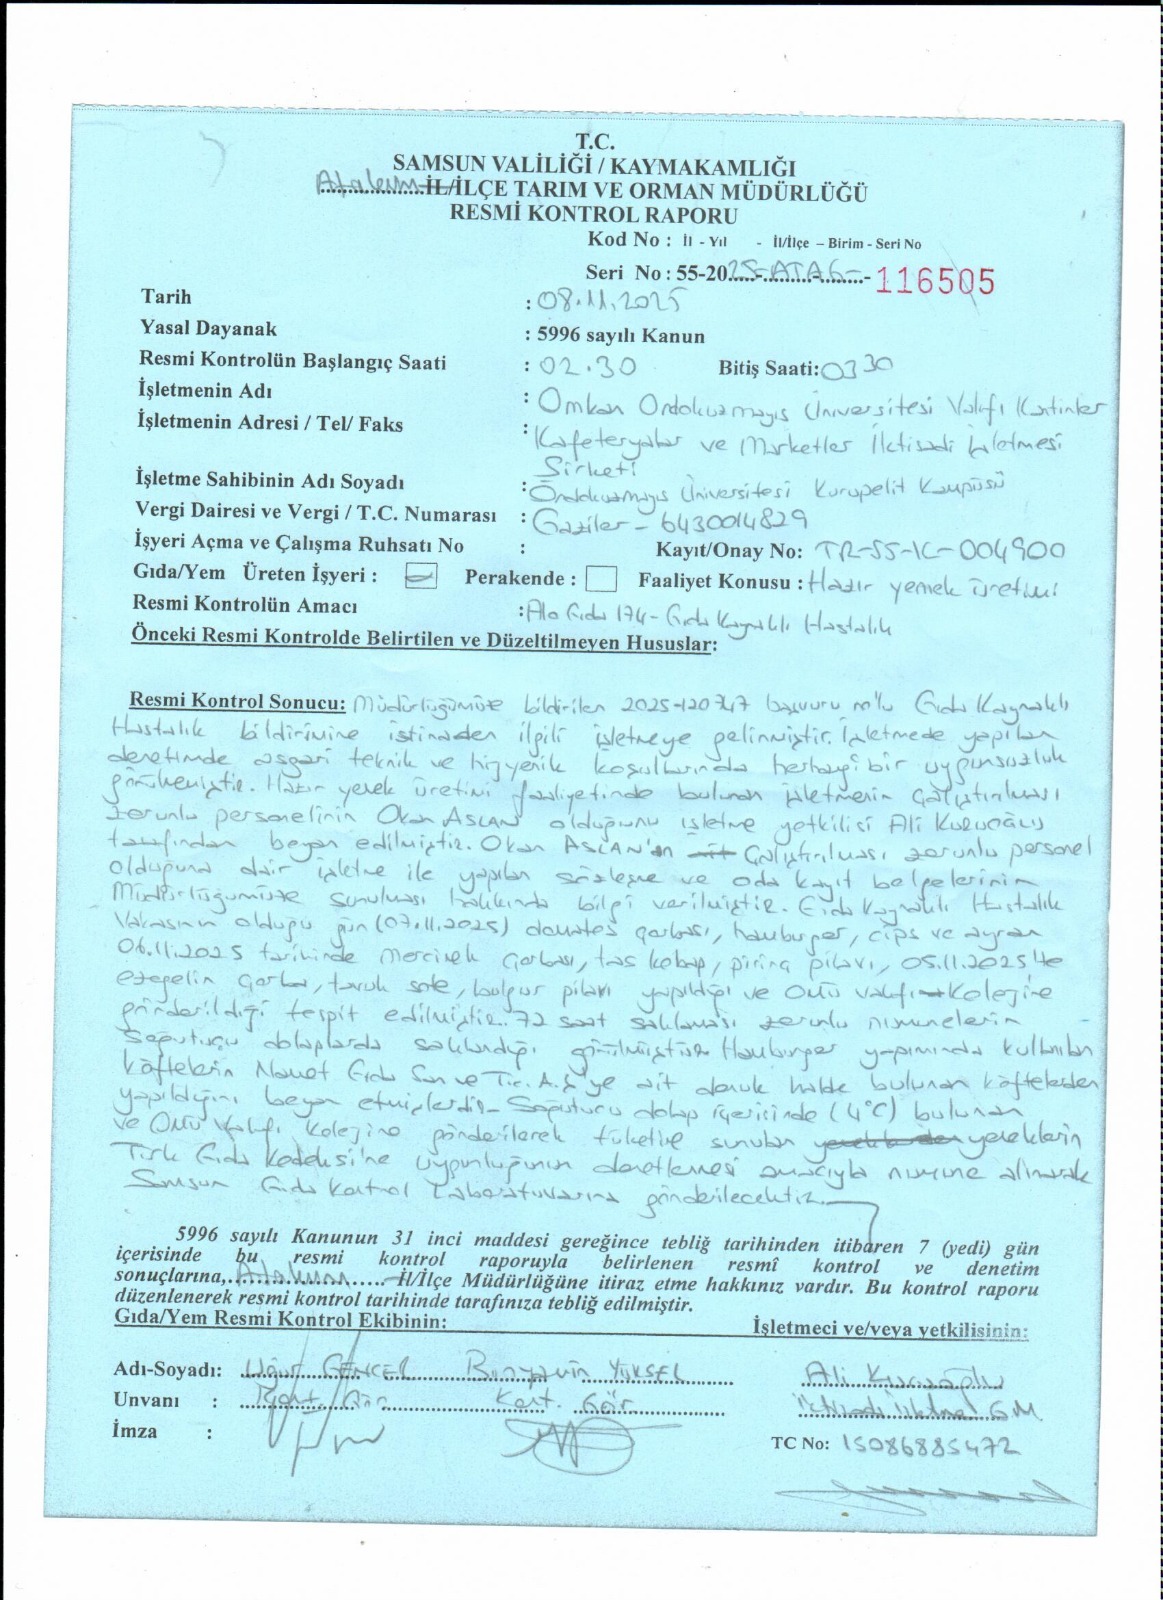 T.C.
SAMSUN VALİLİĞİ / KAYMAKAMLIĞI
Atakum İL/İLÇE TARIM VE ORMAN MÜDÜRLÜĞÜ
RESMİ KONTROL RAPORU
Kod No : İl - Yıl - İl/İlçe – Birim - Seri No
Seri No : 55-2025-ATAG-116505
Tarih : 08.11.2025
Yasal Dayanak : 5996 sayılı Kanun
Resmi Kontrolün Başlangıç Saati : 02.30 Bitiş Saati: 0330
İşletmenin Adı : Omkan Ondokuzmayıs Üniversitesi Vakfı Kantinler
İşletmenin Adresi / Tel/ Faks : Kafeteryalar ve Marketler İktisadi İşletmesi
Şirketi
İşletme Sahibinin Adı Soyadı : Ondokuzmayıs Üniversitesi Kurupelit Kampüsü
Vergi Dairesi ve Vergi / T.C. Numarası : Gaziler - 6430014829
İşyeri Açma ve Çalışma Ruhsatı No : Kayıt/Onay No: TR-55-K-004900
Gıda/Yem Üreten İşyeri : Perakende : Faaliyet Konusu : Hazır yemek üretimi
Resmi Kontrolün Amacı : Alo Gıda 174 - Gıda Kaynaklı Hastalık
Önceki Resmi Kontrolde Belirtilen ve Düzeltilmeyen Hususlar:
Resmi Kontrol Sonucu: Müdürlüğümüze bildirilen 2025-120747 başvuru no'lu Gıda Kaynaklı
Hastalık bildirimine istinaden ilgili işletmeye gelinmiştir. İşletmede yapılan
denetimde asgari teknik ve hijyenik koşullarında herhangi bir uygunsuzluk
görülmemiştir. Hazır yemek üretimi faaliyetinde bulunan işletmenin çalıştırılması
zorunlu personelinin Okan ASLAN olduğunu işletme yetkilisi Ali Kuruoğlu
tarafından beyan edilmiştir. Okan ASLAN'ın çalıştırılması zorunlu personel
olduğuna dair işletme ile yapılan sözleşme ve oda kayıt belgelerinin
Müdürlüğümüze sunulması hakkında bilgi verilmiştir. Gıda Kaynaklı Hastalık
Vakasının olduğu gün (07.11.2025) domates çorbası, hamburger, cips ve ayran
06.11.2025 tarihinde mercimek çorbası, tas kebap, pirinç pilavı, 05.11.2025'te
ezogelin çorba, tavuk sote, bulgur pilavı yapıldığı ve OMÜ vakfı Kolejine
gönderildiği tespit edilmiştir. 72 saat saklaması zorunlu numunelerin
Soğutucu dolaplarda saklandığı görülmüştür. Hamburger yapımında kullanılan
köftelerin Namet Gıda San ve Tic. A.Ş'ye ait donuk halde bulunan köftelerden
yapıldığını beyan etmişlerdir. Soğutucu dolap içerisinde (4°C) bulunan
ve OMÜ Vakfı Kolejine gönderilerek tüketime sunulan yemeklerin
Türk Gıda Kodeksi'ne uygunluğunun denetlemesi amacıyla numune alınarak
Samsun Gıda Kontrol Laboratuvarına gönderilecektir.
5996 sayılı Kanunun 31 inci maddesi gereğince tebliğ tarihinden itibaren 7 (yedi) gün
içerisinde bu resmi kontrol raporuyla belirlenen resmî kontrol ve denetim
sonuçlarına, Atakum İl/İlçe Müdürlüğüne itiraz etme hakkınız vardır. Bu kontrol raporu
düzenlenerek resmi kontrol tarihinde tarafınıza tebliğ edilmiştir.
Gıda/Yem Resmi Kontrol Ekibinin: İşletmeci ve/veya yetkilisinin:
Adı-Soyadı: Uğur GENCEL Bünyamin YÜKSEL Ali Kuruoğlu
Unvanı : Kont. Gör Kont. Gör. İktisadi İşletme G.M.
İmza : TC No: 15086885472